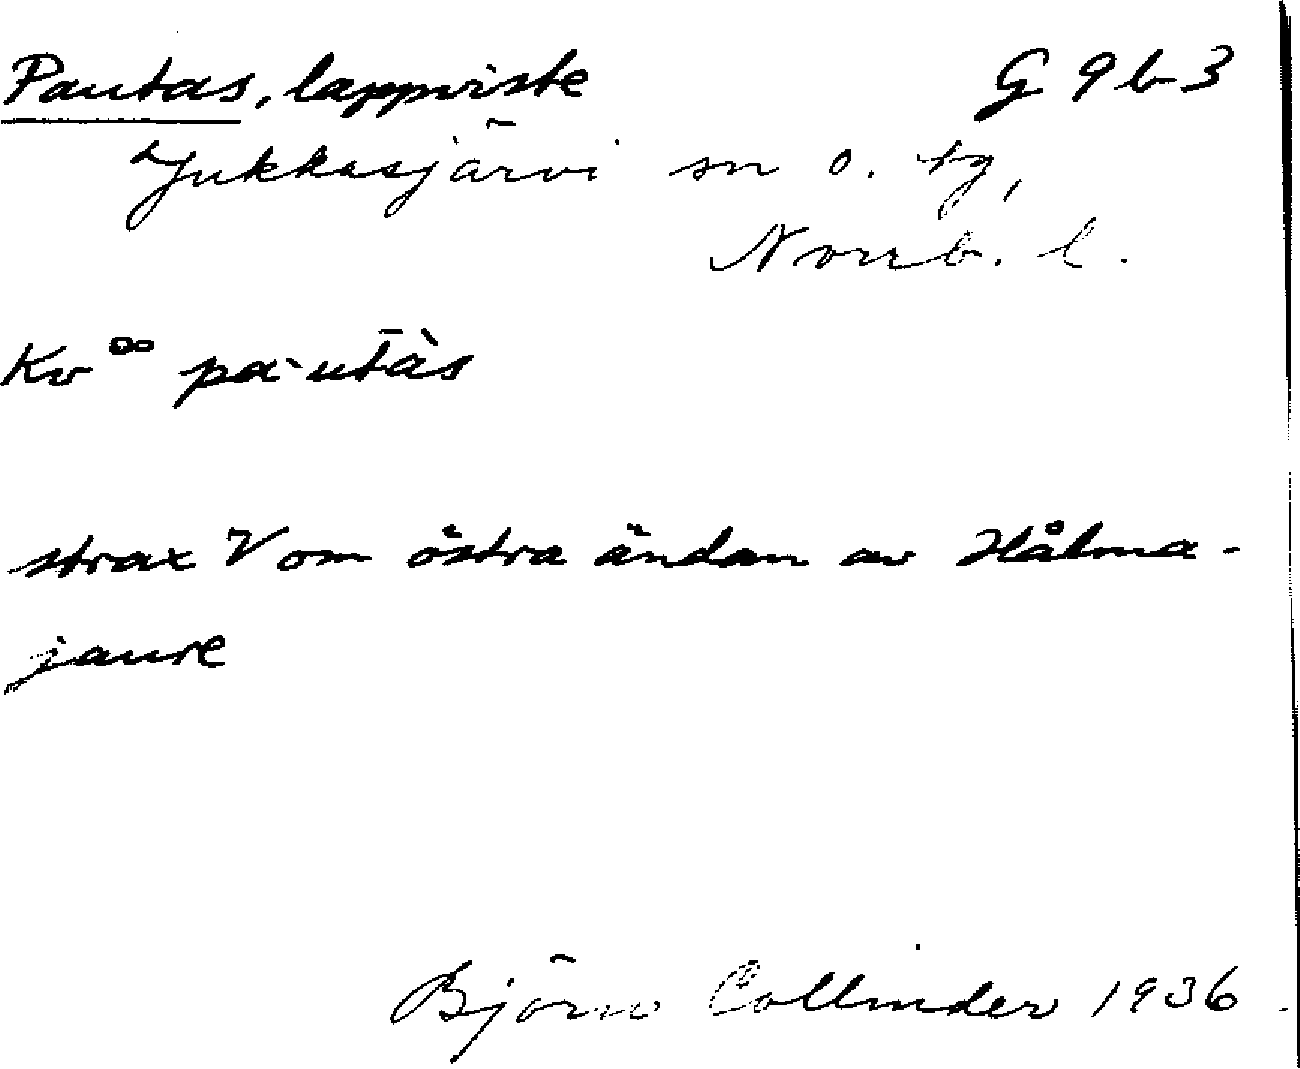 Pautas, lappviste G 9 b 3
Jukkasjärvi sn o. tg,
Norrb. l.
Kv ∞ pa·utàs
strax V om östra ändan av Hålma-
jaure
Björn Collinder 1936